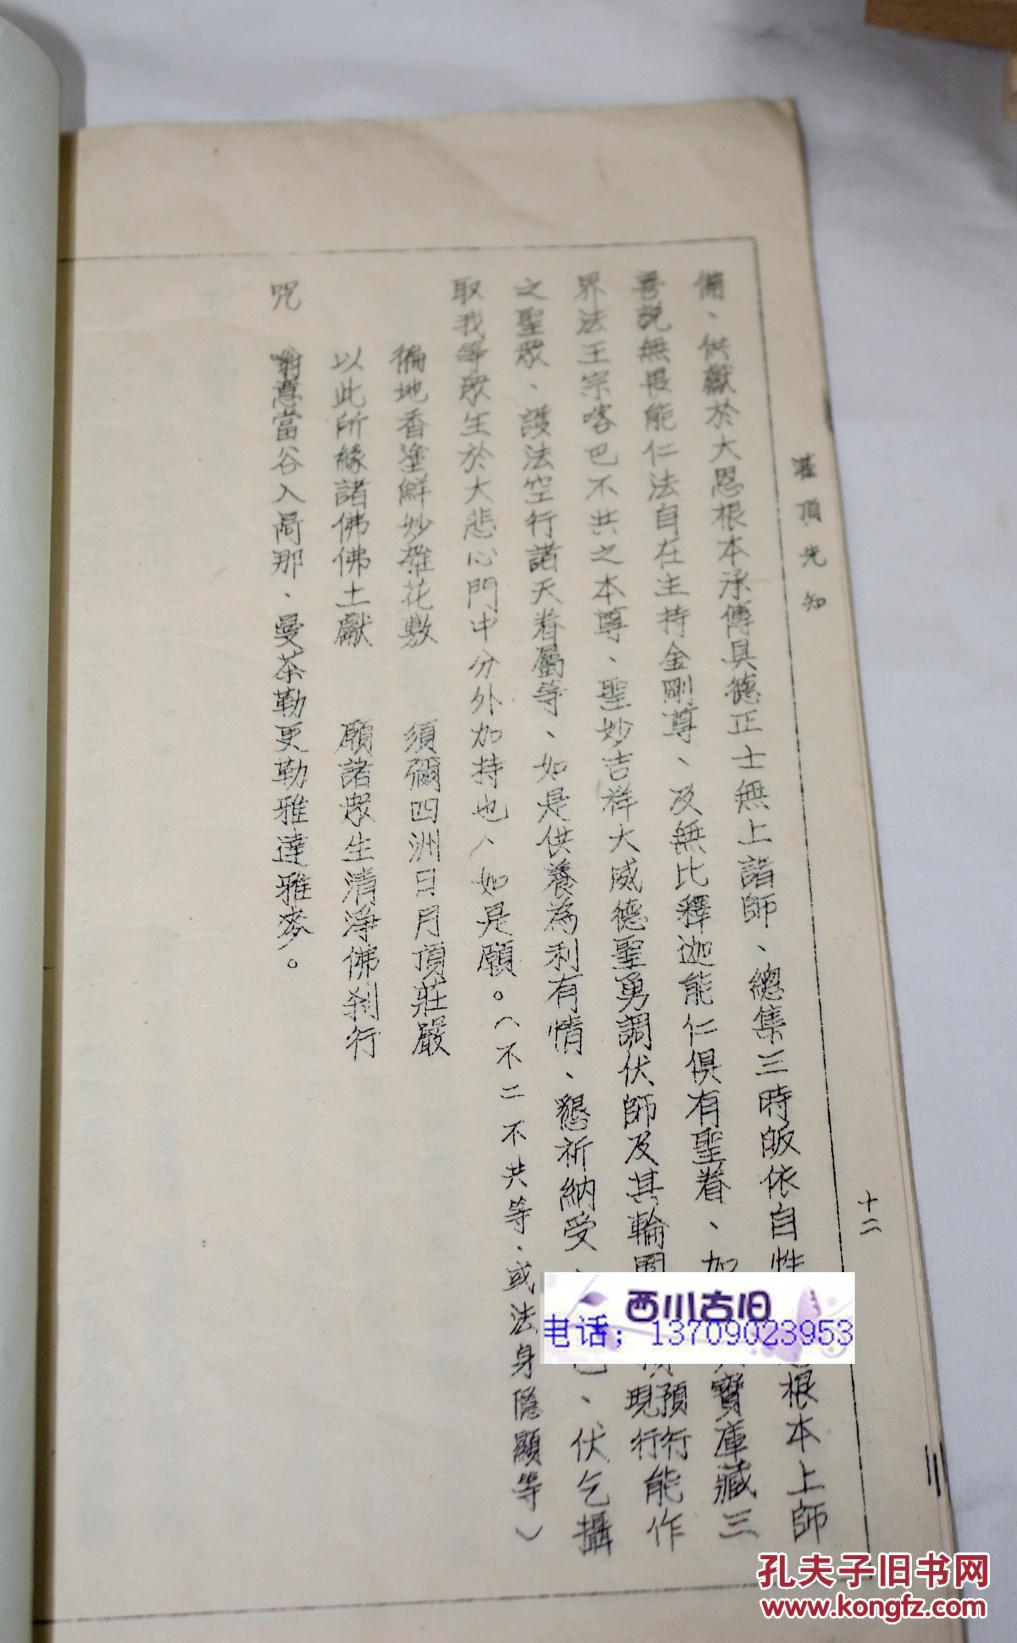 灌頂先知
十二
備、供獻於大恩根本承傳具德正士無上諸師、總集三時皈依自性根本上師
善說無畏能仁法自在主持金剛尊、及無比釋迦能仁俱有聖眷、如寶庫藏三
界法王宗喀巴不共之本尊、聖妙吉祥大威德聖勇調伏師及其輪圍預現行能作
之聖眾、護法空行諸天眷屬等、如是供養為利有情、懇祈納受、伏乞攝
取我等眾生於大悲心門中分外加持也、如是願。(不二不共等、或法身隱顯等)
徧地香塗鮮妙雜花敷 須彌四洲日月頂莊嚴
以此所緣諸佛佛土獻 願諸眾生清淨佛剎行
咒 意當谷入咼那、曼茶勒更勒雅達雅麥。
西川古旧
电话；13709023953
孔夫子旧书网
www.kongfz.com